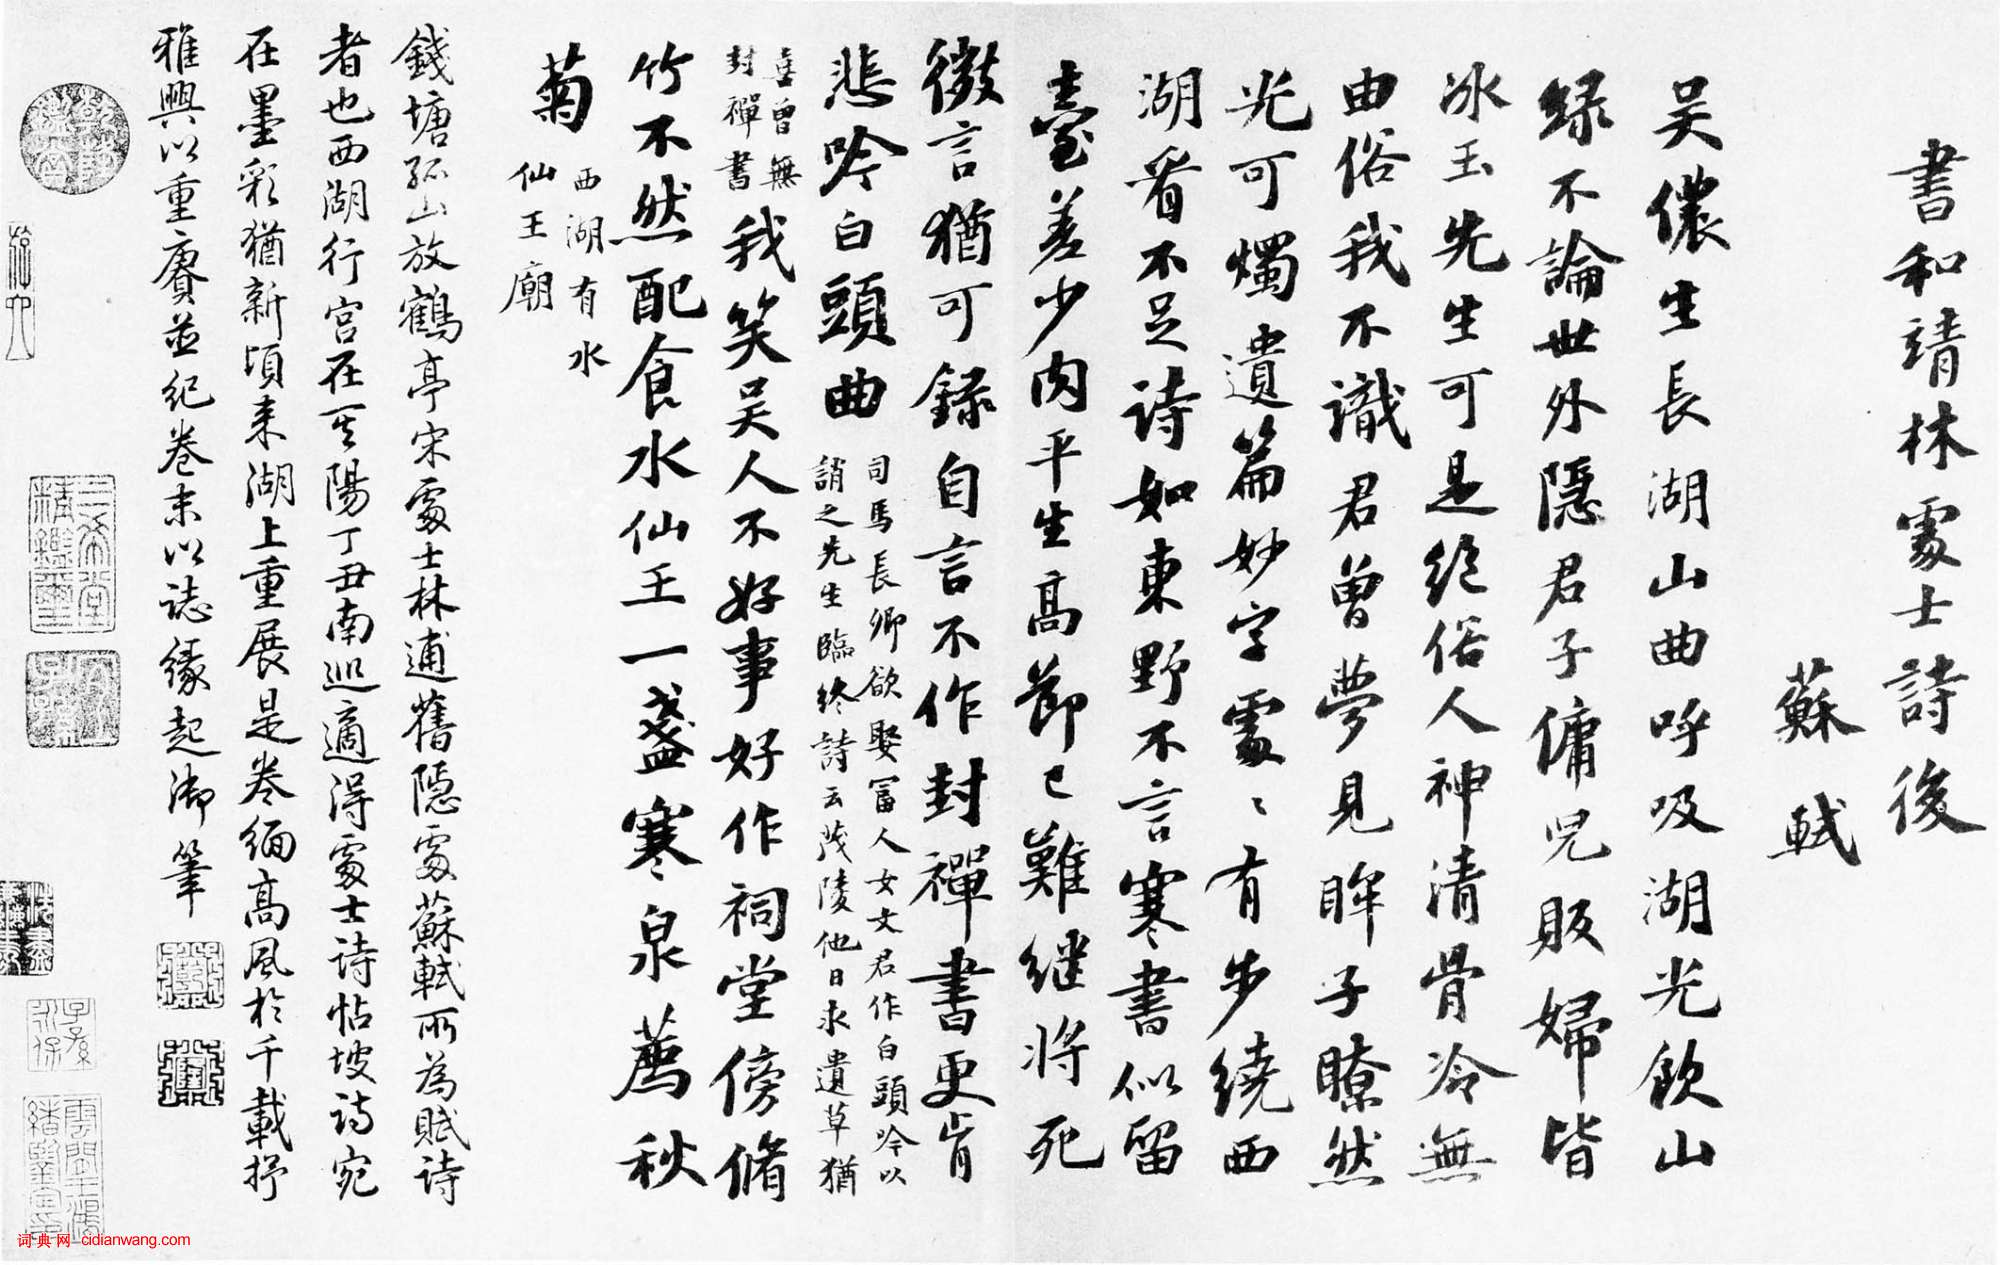 書和靖林處士詩後
蘇軾
吴儂生長湖山曲呼吸湖光飲山
緑不論世外隱君子傭兒販婦皆
冰玉先生可是絕俗人神清骨冷無
由俗我不識君曾夢見眸子瞭然
光可燭遺篇妙字處〻有步繞西
湖看不足詩如東野不言寒書似留
臺差少肉平生高節已難継將死
微言猶可錄自言不作封禪書更肯
悲吟白頭曲
司馬長卿欲娶富人女文君作白頭吟以
誚之先生臨終詩云茂陵他日求遺草猶
喜曾無
封禪書
我笑吴人不好事好作祠堂傍脩
竹不然配食水仙王一盞寒泉薦秋
菊
西湖有水
仙王廟
錢塘孤山放鶴亭宋處士林逋舊隱處蘇軾所為賦詩
者也西湖行宮在其陽丁丑南巡適得處士詩帖坡詩宛
在墨彩猶新頃来湖上重展是卷緬高風於千載抒
雅興以重賡並紀卷末以誌緣起御筆
三希堂
精鑑璽
宜子孫
词典网 cidianwang.com